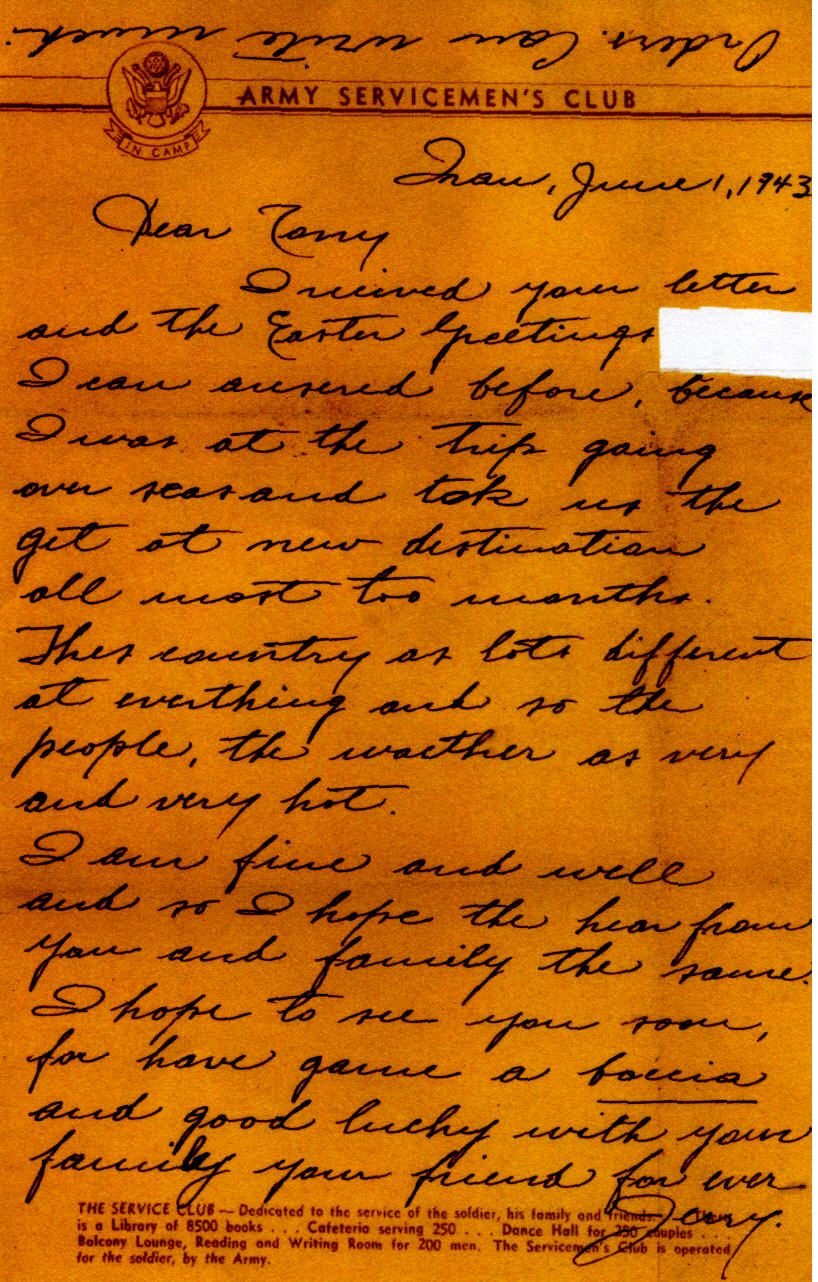 Orders. Can write much.
ARMY SERVICEMEN'S CLUB
IN CAMP
Iran, June 1, 1943
Dear Tony
I recived your letter
and the Easter Greetings
I can ansered before, because
I was at the trip going
over seas and tok us the
get at new destination
all most too months.
Thes country as lots different
at everthing and so the
people, the waether as very
and very hot.
I am fine and well
and so I hope the hear from
you and family the same.
I hope to see you soon,
for have game a boccia
and good lucky with your
family your friend for ever
Jerry.
THE SERVICE CLUB — Dedicated to the service of the soldier, his family and friends.
is a Library of 8500 books . . . Cafeteria serving 250 . . . Dance Hall for 250 couples . . .
Balcony Lounge, Reading and Writing Room for 200 men. The Servicemen's Club is operated
for the soldier, by the Army.